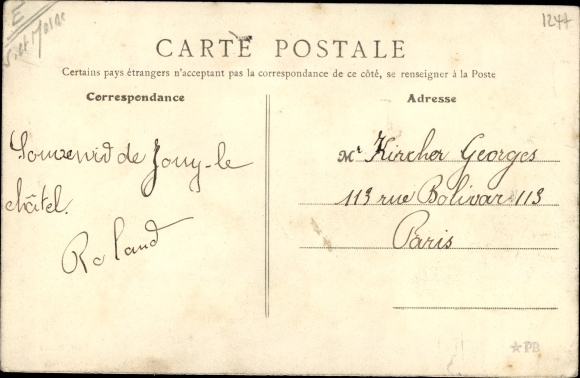 E
S et Marne
1244
CARTE POSTALE
Certains pays étrangers n'acceptant pas la correspondance de ce côté, se renseigner à la Poste
Correspondance
Souvenid de Jouy-le
châtel.
Roland
Adresse
Mr Kircher Georges
113 rue Bolivar 113
Paris
★PB